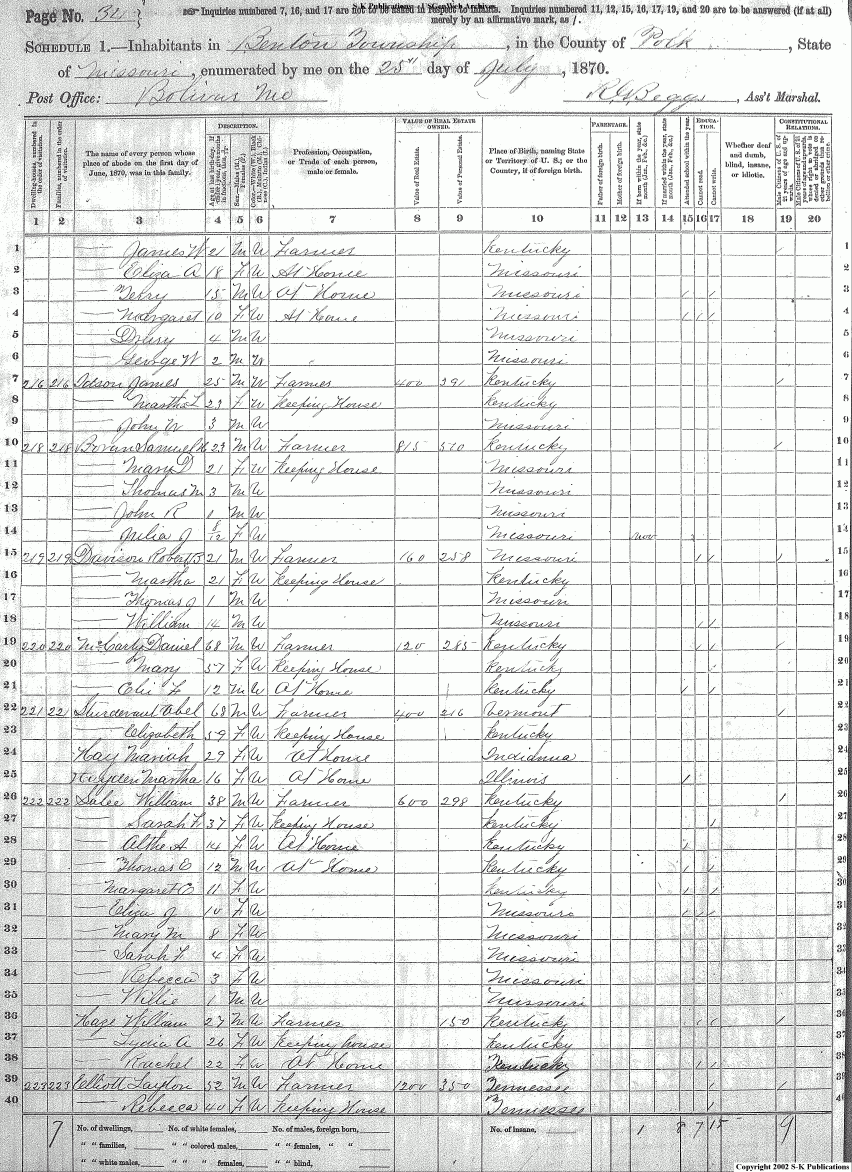 S-K Publications - USGenWeb Archives
Page No. 32 Inquiries numbered 7, 16, and 17 are not to be asked in respect to infants. Inquiries 11, 12, 15, 16, 17, 19, and 20 are to be answered (if at all) merely by an affirmative mark, as /.
SCHEDULE 1.—Inhabitants in Benton Township, in the County of Polk, State
of Missouri, enumerated by me on the 25th day of July, 1870.
Post Office: Bolivar Mo R G Beggs, Ass't Marshal.
Dwelling-houses, numbered in the order of visitation. Families, numbered in the order of visitation. The name of every person whose place of abode on the first day of June, 1870, was in this family. DESCRIPTION. Profession, Occupation, or Trade of each person, male or female. VALUE OF REAL ESTATE OWNED. Value of Real Estate. Value of Personal Estate. Place of Birth, naming State or Territory of U. S.; or the Country, if of foreign birth. PARENTAGE. Father of foreign birth. Mother of foreign birth. EDUCATION. Attended school within the year. Cannot read. Cannot write. Whether deaf and dumb, blind, insane, or idiotic. CONSTITUTIONAL RELATIONS.
1 2 3 4 5 6 7 8 9 10 11 12 13 14 15 16 17 18 19 20
1 — James W 21 M W Farmer Kentucky / 1
2 — Eliza A 18 F W At Home Missouri 2
3 — 15 M W At Home Missouri / / 3
4 — Margaret 10 F W At Home Missouri / / / 4
5 — Drury 4 M W Missouri 5
6 — George W 2 M W Missouri 6
7 216 216 James 25 M W Farmer 400 391 Kentucky / 7
8 — Martha L 23 F W Keeping House Kentucky 8
9 — John W 3 M W Missouri 9
10 218 218 Samuel H 23 M W Farmer 815 510 Kentucky / 10
11 — Mary D 21 F W Keeping House Missouri 11
12 — Thomas M 3 M W Missouri 12
13 — John R 1 M W Missouri 13
14 — Julia J 8/12 F W Missouri Nov 14
15 219 219 Davison Robert B 21 M W Farmer 160 258 Missouri / / / 15
16 — Martha 21 F W Keeping House Kentucky 16
17 — Thomas J 1 M W Missouri 17
18 — William 14 M W Missouri / / 18
19 220 220 McCarty Daniel 68 M W Farmer 120 285 Kentucky / / / 19
20 — Mary 57 F W Keeping House Kentucky / 20
21 — Eli F 12 M W At Home Kentucky / / 21
22 221 221 Sturdevant Abel 68 M W Farmer 400 216 Vermont / 22
23 — Elizabeth 59 F W Keeping House Kentucky 23
24 Hay Mariah 29 F W At Home Indianna 24
25 Martha 16 F W At Home Illinois / 25
26 222 222 Salee William 38 M W Farmer 600 298 Kentucky / 26
27 — Sarah F 37 F W Keeping House Kentucky / 27
28 — Althe A 14 F W At Home Kentucky / 28
29 — Thomas E 12 M W At Home Kentucky / / 29
30 — Margaret C 11 F W Kentucky / / 30
31 — Eliza J 10 F W Missouri / / / 31
32 — Mary M 8 F W Missouri 32
33 — Sarah F 4 F W Missouri 33
34 — Rebecca 3 F W Missouri 34
35 — Willie 1 M W Missouri 35
36 Hage William 27 M W Farmer 150 Kentucky / / / 36
37 — Lydia A 26 F W Keeping house Kentucky 37
38 — Rachel 22 F W At Home Kentucky / / 38
39 223 223 Elliott Layton 52 M W Farmer 1200 350 Tennessee / / 39
40 — Rebecca 40 F W Keeping House Tennessee / 40
7 No. of dwellings, No. of white females, No. of males, foreign born, No. of insane, 1 8 7 15 9
" " families, " " colored males, " " females, " "
" " white males, " " " females, " " blind,
Copyright 2002 S-K Publications